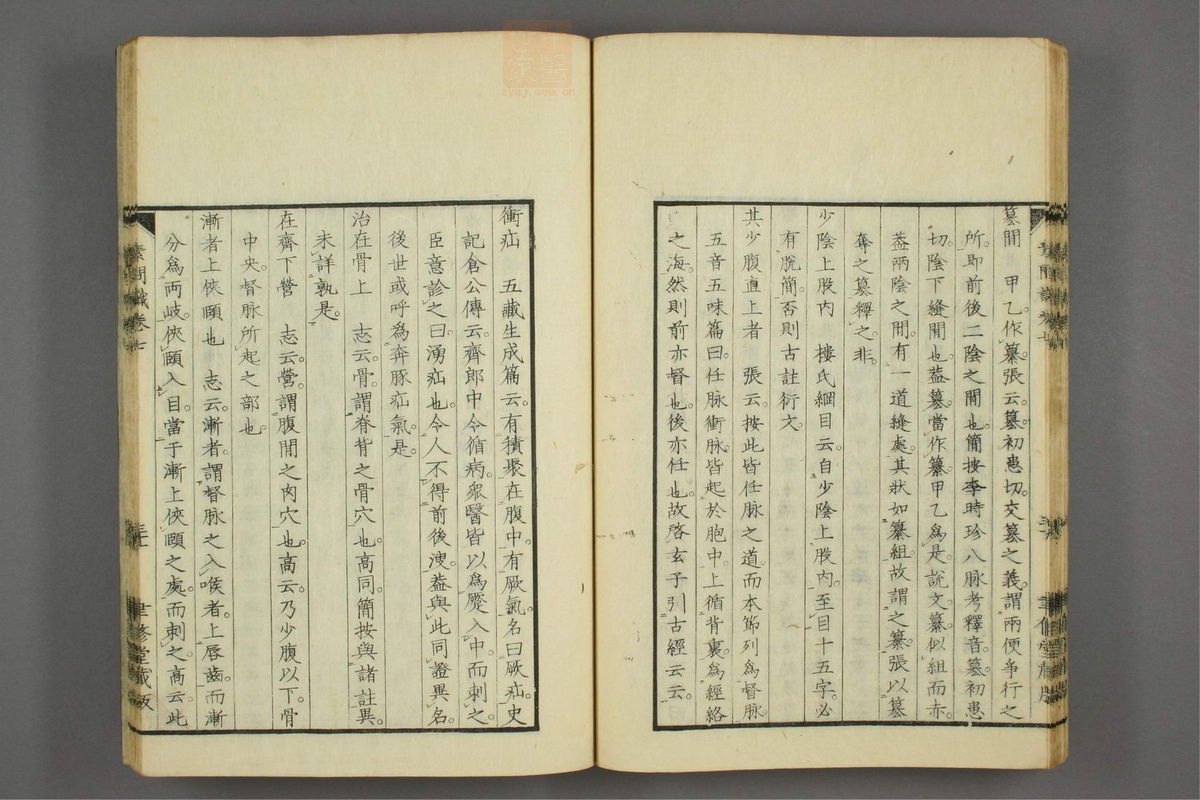 篡間　甲乙作纂張云篡初患切交篡之義謂兩便爭行之
所即前後二陰之間也簡按李時珍八脉考釋音篡初患
切陰下縫間也葢篡當作纂甲乙爲是説文纂似組而赤
葢兩陰之間有一道縫處其狀如纂組故謂之纂張以篡
奪之篡釋之非
少陰上股内　樓氏綱目云自少陰上股内至目十五字必
有脱簡否則古註衍文
其少腹直上者　張云按此皆任脉之道而本節列爲督脉
五音五味篇曰任脉衝脉皆起於胞中上循背裏爲經絡
之海然則前亦督也後亦任也故啓玄子引古經云云
衝疝　五藏生成篇云有積聚在腹中有厥氣名曰厥疝史
記倉公傳云齊郎中令循病衆醫皆以爲蹷入中而刺之
臣意診之曰湧疝也令人不得前後溲葢與此同證異名
後世或呼爲奔豚疝氣是
治在骨上　志云骨謂脊背之骨穴也高同簡按與諸註異
未詳孰是
在齊下營　志云營謂腹間之肉穴也高云乃少腹以下骨
中央督脉所起之部也
漸者上俠頤也　志云漸者謂督脉之入喉者上唇齒而漸
分爲兩岐俠頤入目當于漸上俠頤之處而刺之高云此
素問識卷七
聿修堂藏版